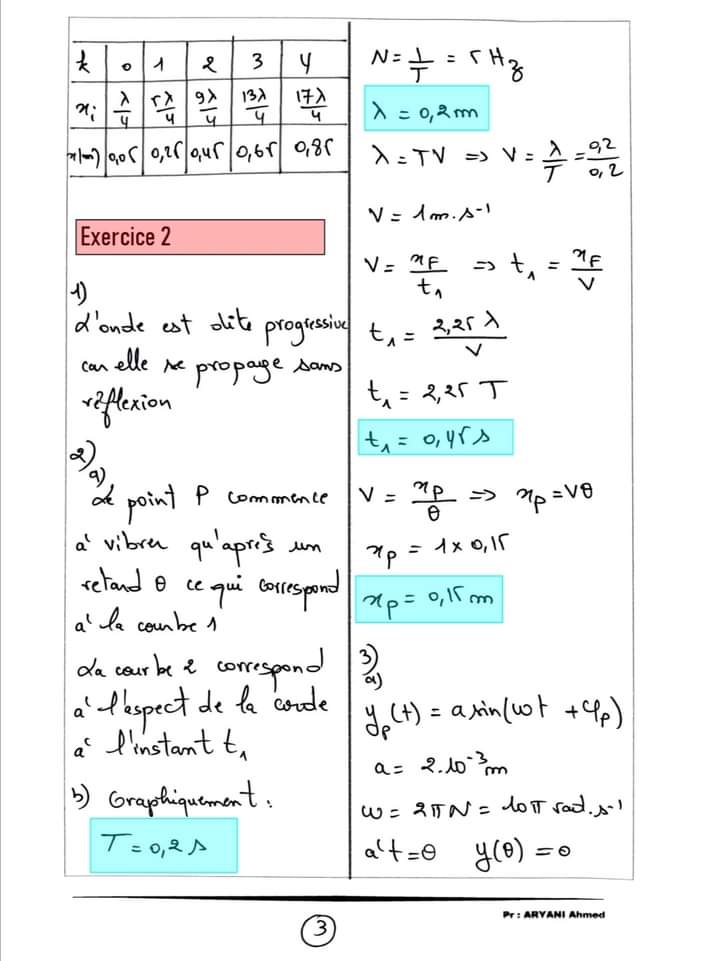 k 0 1 2 3 4
xi λ/4 5λ/4 9λ/4 13λ/4 17λ/4
x(m) 0,05 0,25 0,45 0,65 0,85
Exercice 2
1)
L'onde est dite progressive
car elle se propage sans
réflexion
2)
a)
Le point P commence
à vibrer qu'après un
retard θ ce qui correspond
à la courbe 1
La courbe 2 correspond
à l'aspect de la corde
à l'instant t₁
b) Graphiquement :
T = 0,2 s
N = 1/T = 5 Hz
λ = 0,2 m
λ = TV => V = λ/T = 0,2/0,2
V = 1 m.s⁻¹
V = xF/t₁ => t₁ = xF/V
t₁ = 2,25 λ/V
t₁ = 2,25 T
t₁ = 0,45 s
V = xp/θ => xp = Vθ
xp = 1 x 0,15
xp = 0,15 m
3)
a)
yp(t) = a sin(ωt + φp)
a = 2.10⁻³ m
ω = 2πN = 10π rad.s⁻¹
à t = θ y(θ) = 0
3
Pr : ARYANI Ahmed